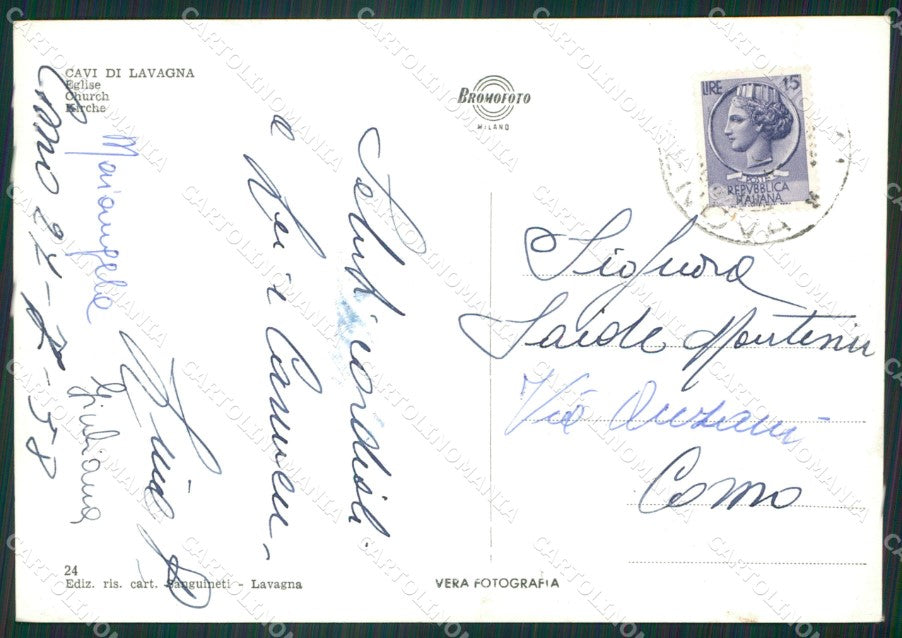 CAVI DI LAVAGNA
Eglise
Church
Kirche
BROMOFOTO
MILANO
LIRE 15
POSTE
REPVBBLICA
ITALIANA
Saluti cordiali
a Lei e Carmen
Mariangela
Giuliana
Signora
Saide
Via Anzani
Como
24
Ediz. ris. cart. Sanguineti - Lavagna
VERA FOTOGRAFIA
CARTOLINOMANIA